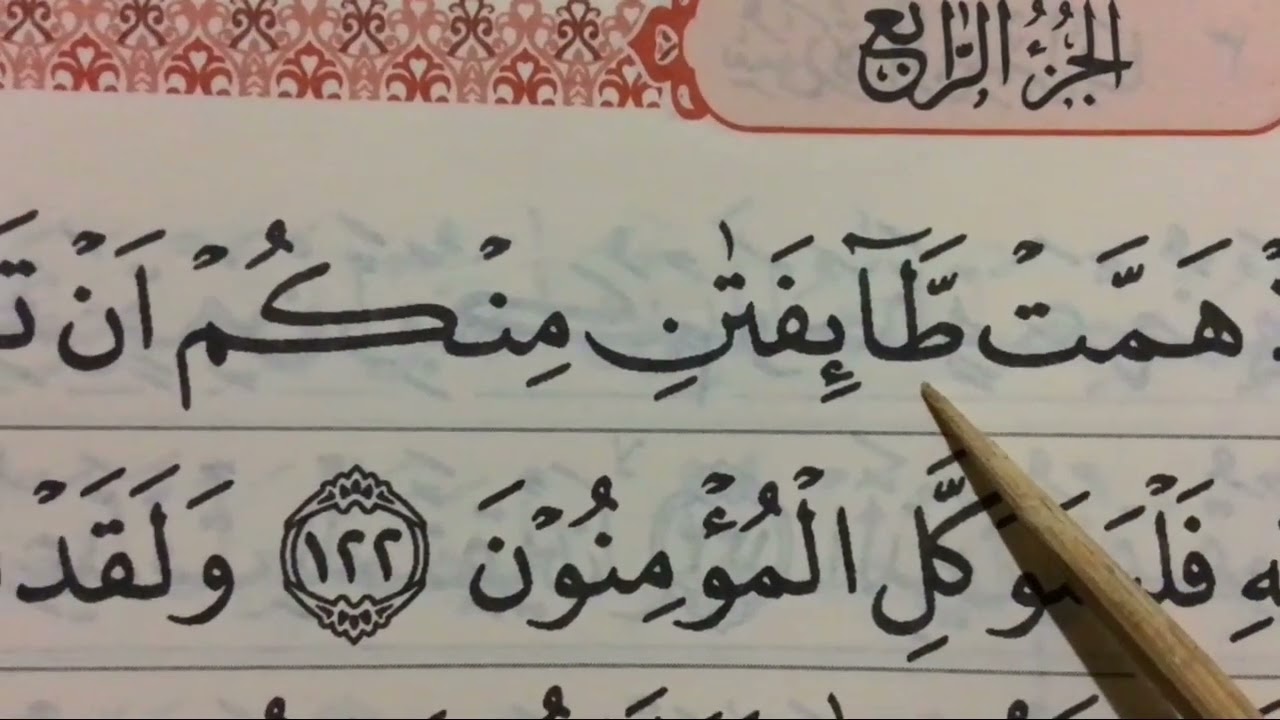 الجزء الرابع
هَمَّتْ طَّآئِفَتٰنِ مِنْكُمْ اَنْ
فَلْيَتَوَكَّلِ الْمُؤْمِنُوْنَ ١٢٢ وَلَقَدْ